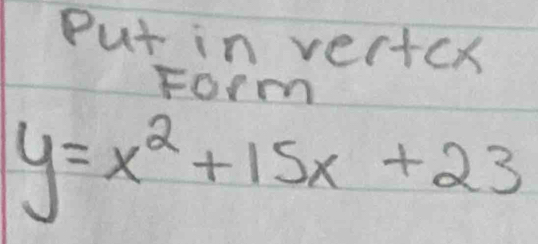 Put in vertex
Form
y = x² + 15x + 23